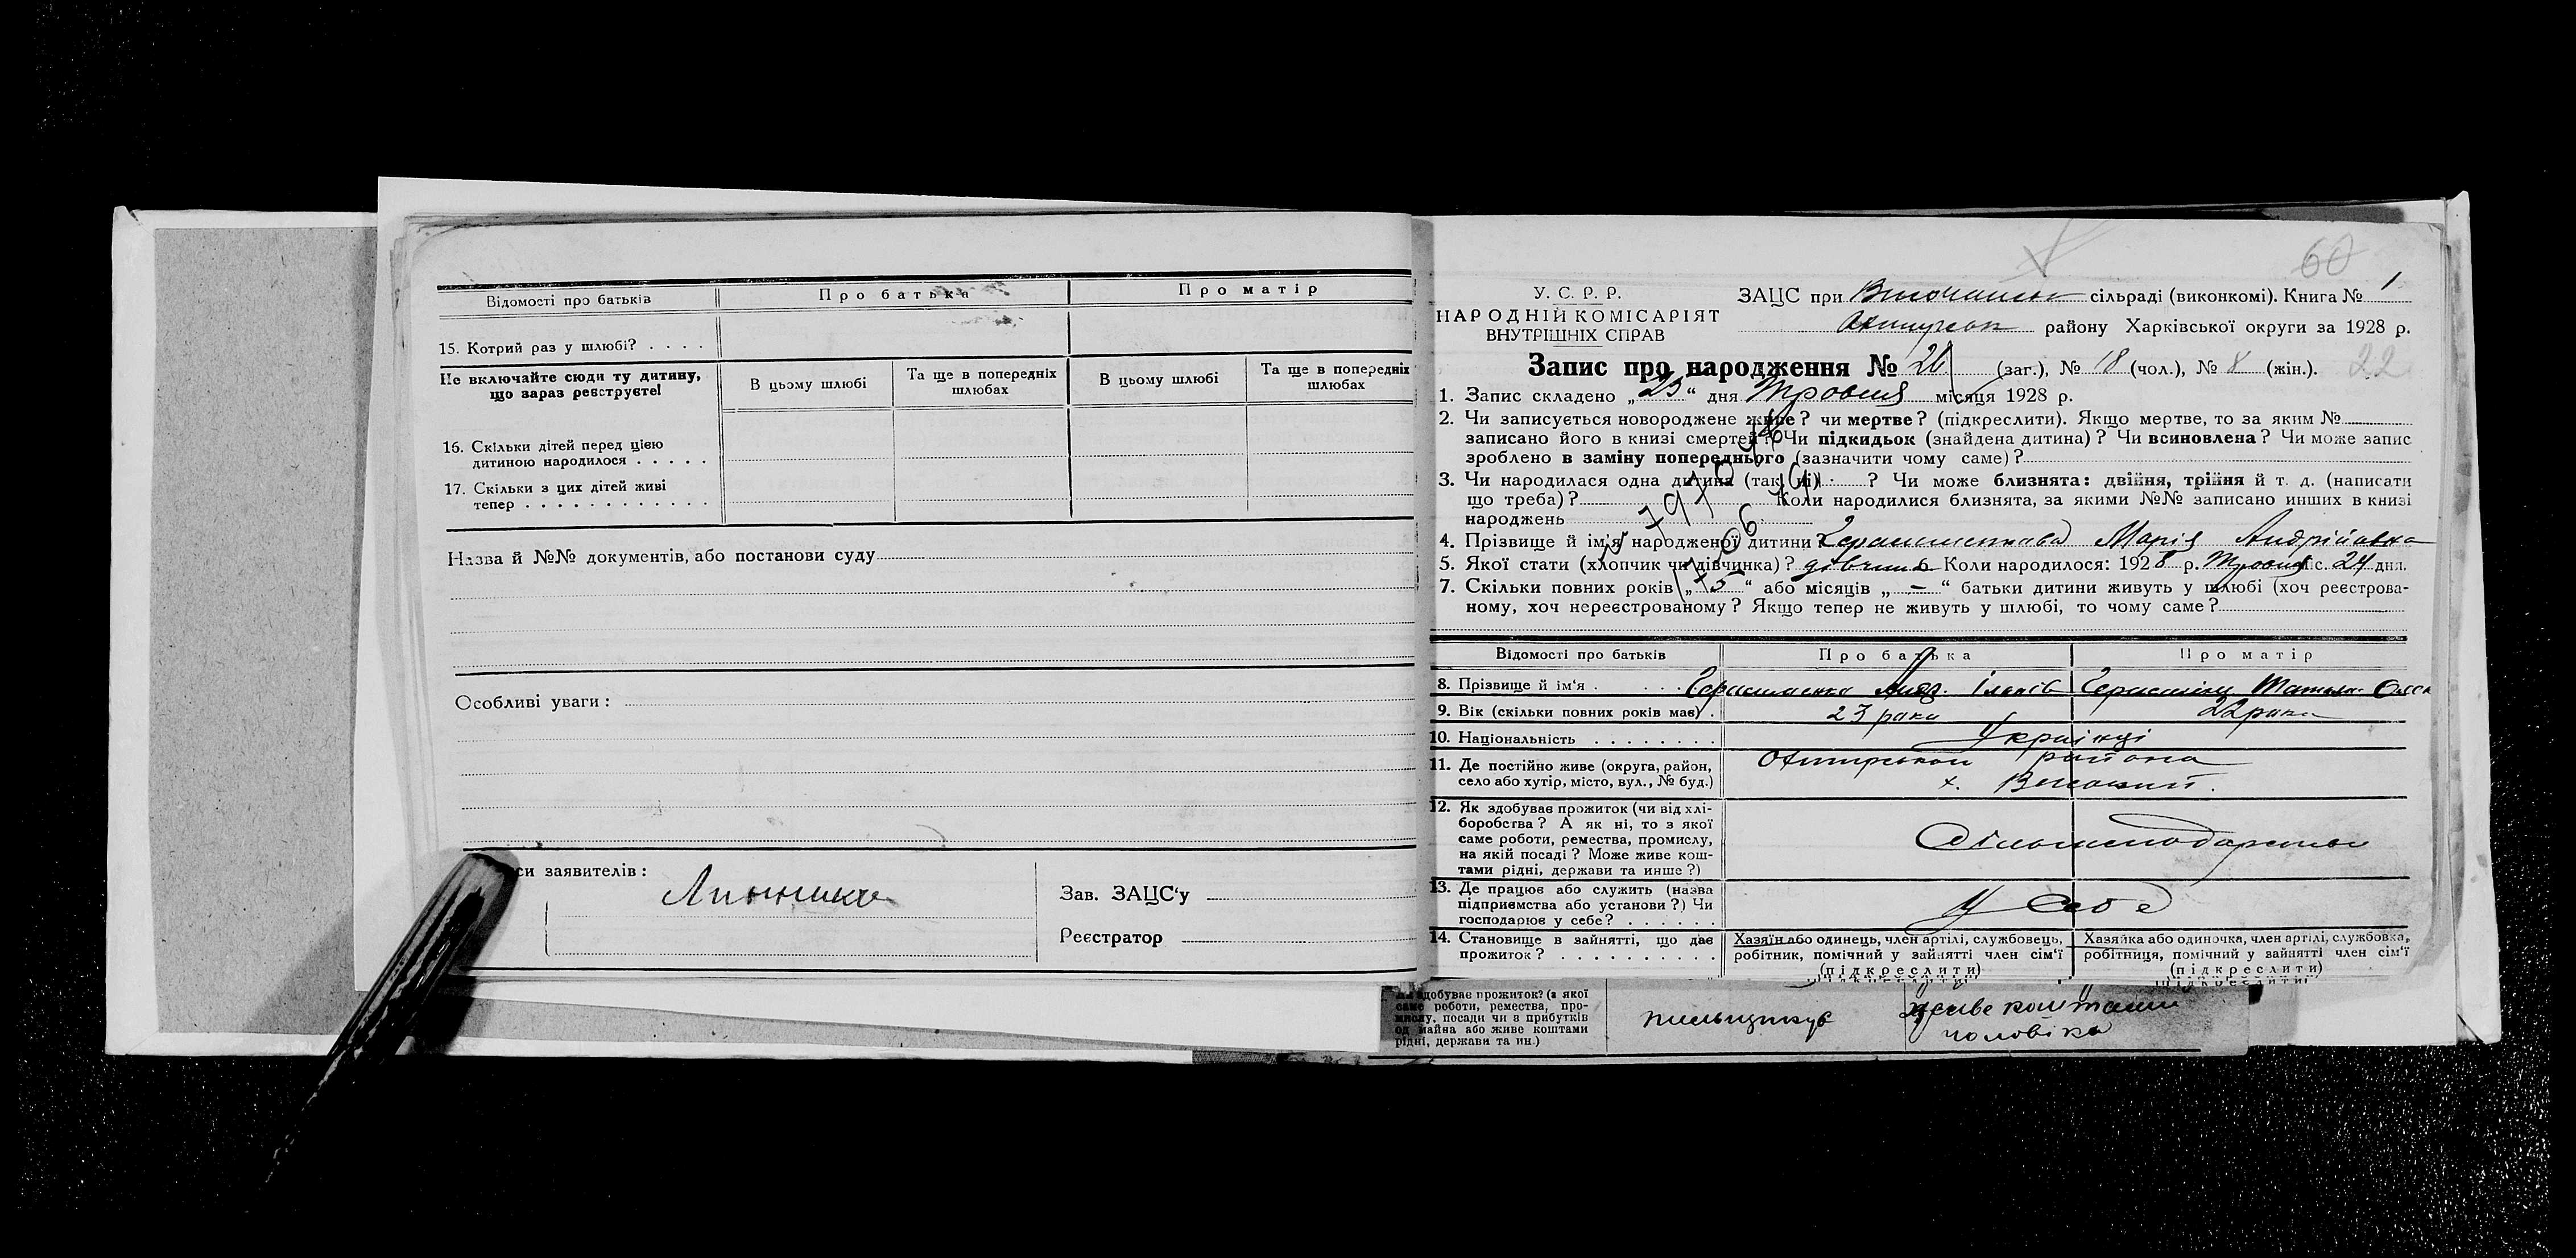 Відомості про батьків
Про батька
Про матір
15. Котрий раз у шлюбі? . . . .
Не включайте сюди ту дитину,
що зараз реєструєте!
В цьому шлюбі
Та ще в попередніх
шлюбах
В цьому шлюбі
Та ще в попередніх
шлюбах
16. Скільки дітей перед цією
дитиною народилося . . . . .
17. Скільки з цих дітей живі
тепер . . . . . . . . . . . .
Назва й №№ документів, або постанови суду
Особливі уваги:
си заявителів:
Зав. ЗАЦС'у
Реєстратор
60
У. С. Р. Р.
НАРОДНІЙ КОМІСАРІЯТ
ВНУТРІШНІХ СПРАВ
ЗАЦС при сільраді (виконкомі). Книга № 1
району Харківської округи за 1928 р.
Запис про народження № 26 (заг.), № 18 (чол.), № 8 (жін.). 22
1. Запис складено „23“ дня Травня місяця 1928 р.
2. Чи записується новороджене живе? чи мертве? (підкреслити). Якщо мертве, то за яким №
записано його в книзі смертей? Чи підкидьок (знайдена дитина)? Чи всиновлена? Чи може запис
зроблено в заміну попереднього (зазначити чому саме)?
3. Чи народилася одна дитина (так, ні) ? Чи може близнята: двійня, трійня й т. д. (написати
що треба)? Коли народилися близнята, за якими №№ записано инших в книзі
народжень
4. Прізвище й ім'я народженої дитини? Марія Андріївна
5. Якої стати (хлопчик чи дівчинка)? дівчина 6. Коли народилося: 1928 р. Травня міс. 24 дня.
7. Скільки повних років „5“ або місяців „–“ батьки дитини живуть у шлюбі (хоч реєстрова-
ному, хоч нереєстрованому? Якщо тепер не живуть у шлюбі, то чому саме?
Відомості про батьків
Про батька
Про матір
8. Прізвище й ім'я . . . . Герасименко
9. Вік (скільки повних років має) . 23 роки 22 роки
10. Національність . . . . . . . . Українці
11. Де постійно живе (округа, район,
село або хутір, місто, вул., № буд.)
района
х.
12. Як здобуває прожиток (чи від хлі-
боробства? А як ні, то з якої
саме роботи, ремества, промислу,
на якій посаді? Може живе кош-
тами рідні, держави та инше?)
13. Де працює або служить (назва
підприємства або установи?) Чи
господарює у себе? . . . . . .
У себе
14. Становище в зайнятті, що дає
прожиток? . . . . . . . . . .
Хазяїн або одинець, член артілі, службовець,
робітник, помічний у зайнятті член сім'ї
(підкреслити)
Хазяйка або одиночка, член артілі, службовка,
робітниця, помічний у зайнятті член сім'ї
(підкреслити)
здобуває прожиток? (з якої
саме роботи, ремества, про-
мислу, посади чи в прибутків
од майна або живе коштами
рідні, держави та ин.)
живе коштами
чоловіка